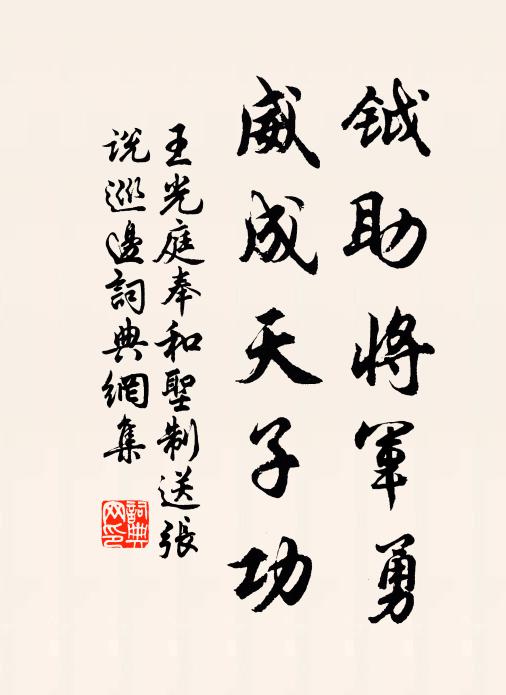 钺助将军勇
威成天子功
王光庭奉和聖制送張
说巡邊詞典網集
詞典
网印